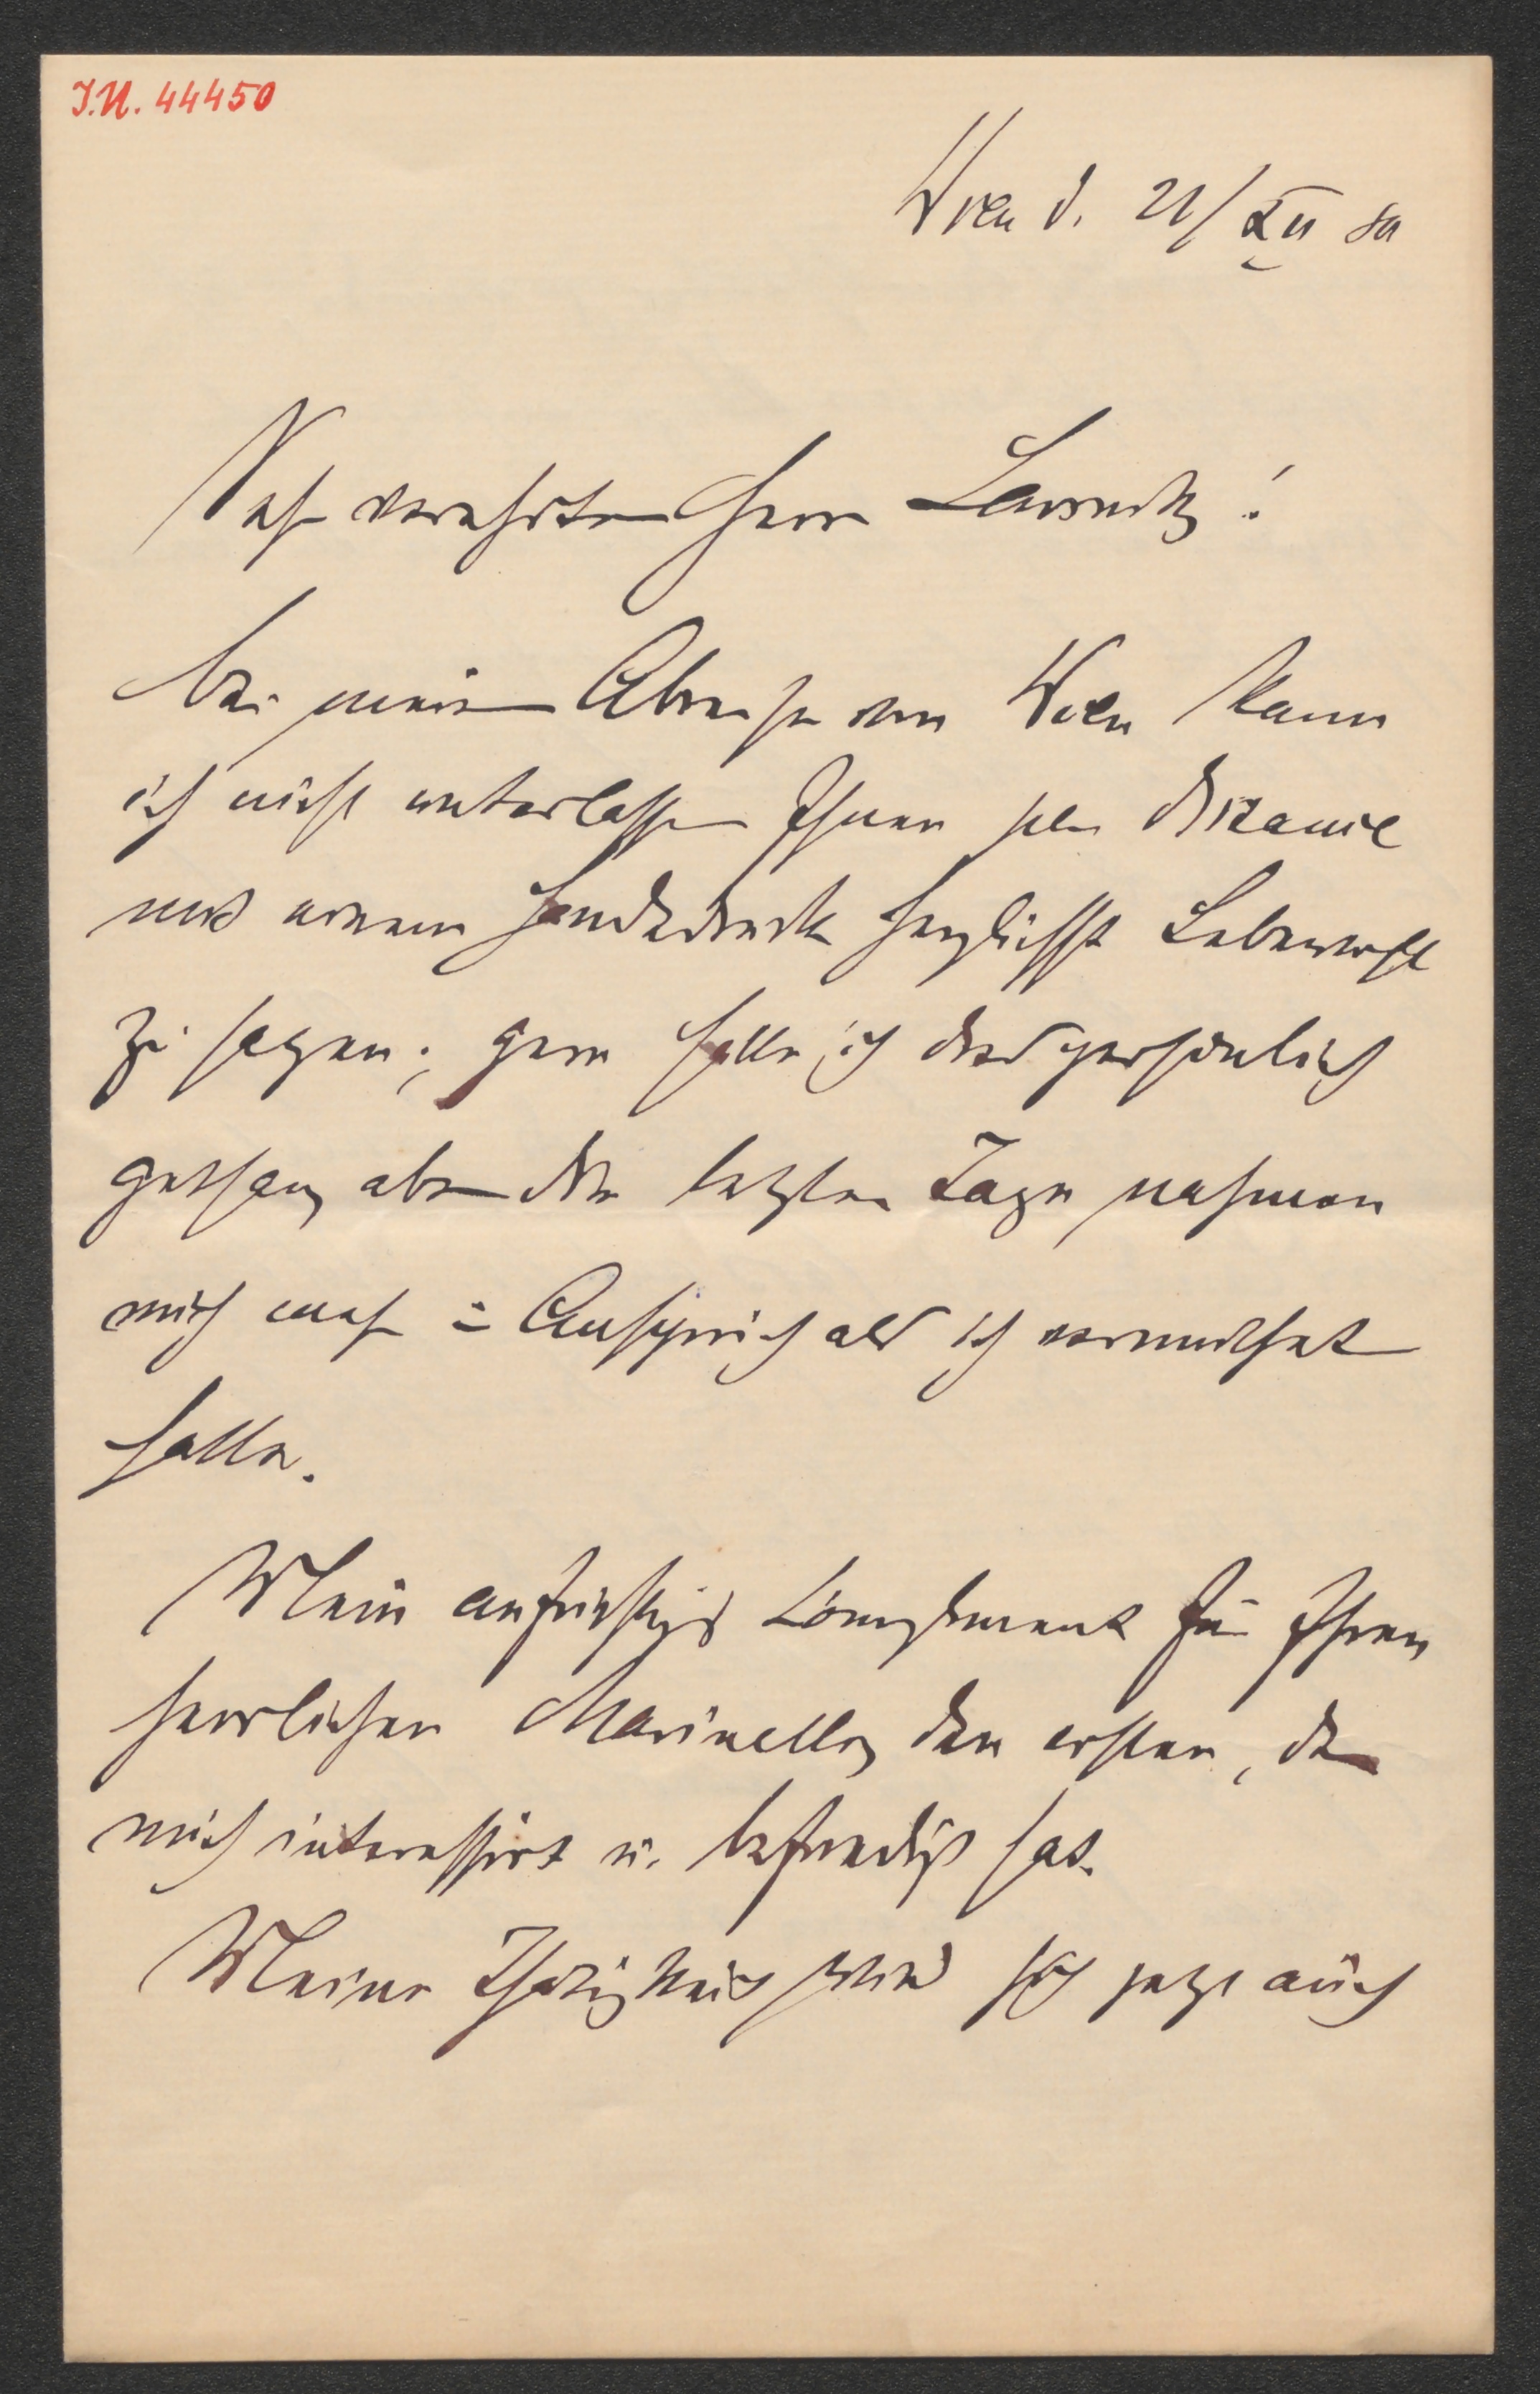 I.N. 44450
Wien d. 21/XII 80
Sehr verehrter Herr Lewinsky!
Bei meiner Abreise von Wien kann
ich nicht unterlassen Ihnen
mit einem Händedruck herzlichst Lebewohl
zu sagen; gern hätte ich dies persönlich
gethan, aber die letzten Tage nahmen
mich mehr in Anspruch als ich vermuthet
hatte.
Mein aufrichtiges Compliment für Ihren
herrlichen Marinelli, den ersten, der
mich interessirt u. befriedigt hat.
Meine Thätigkeit wird sich jetzt auch